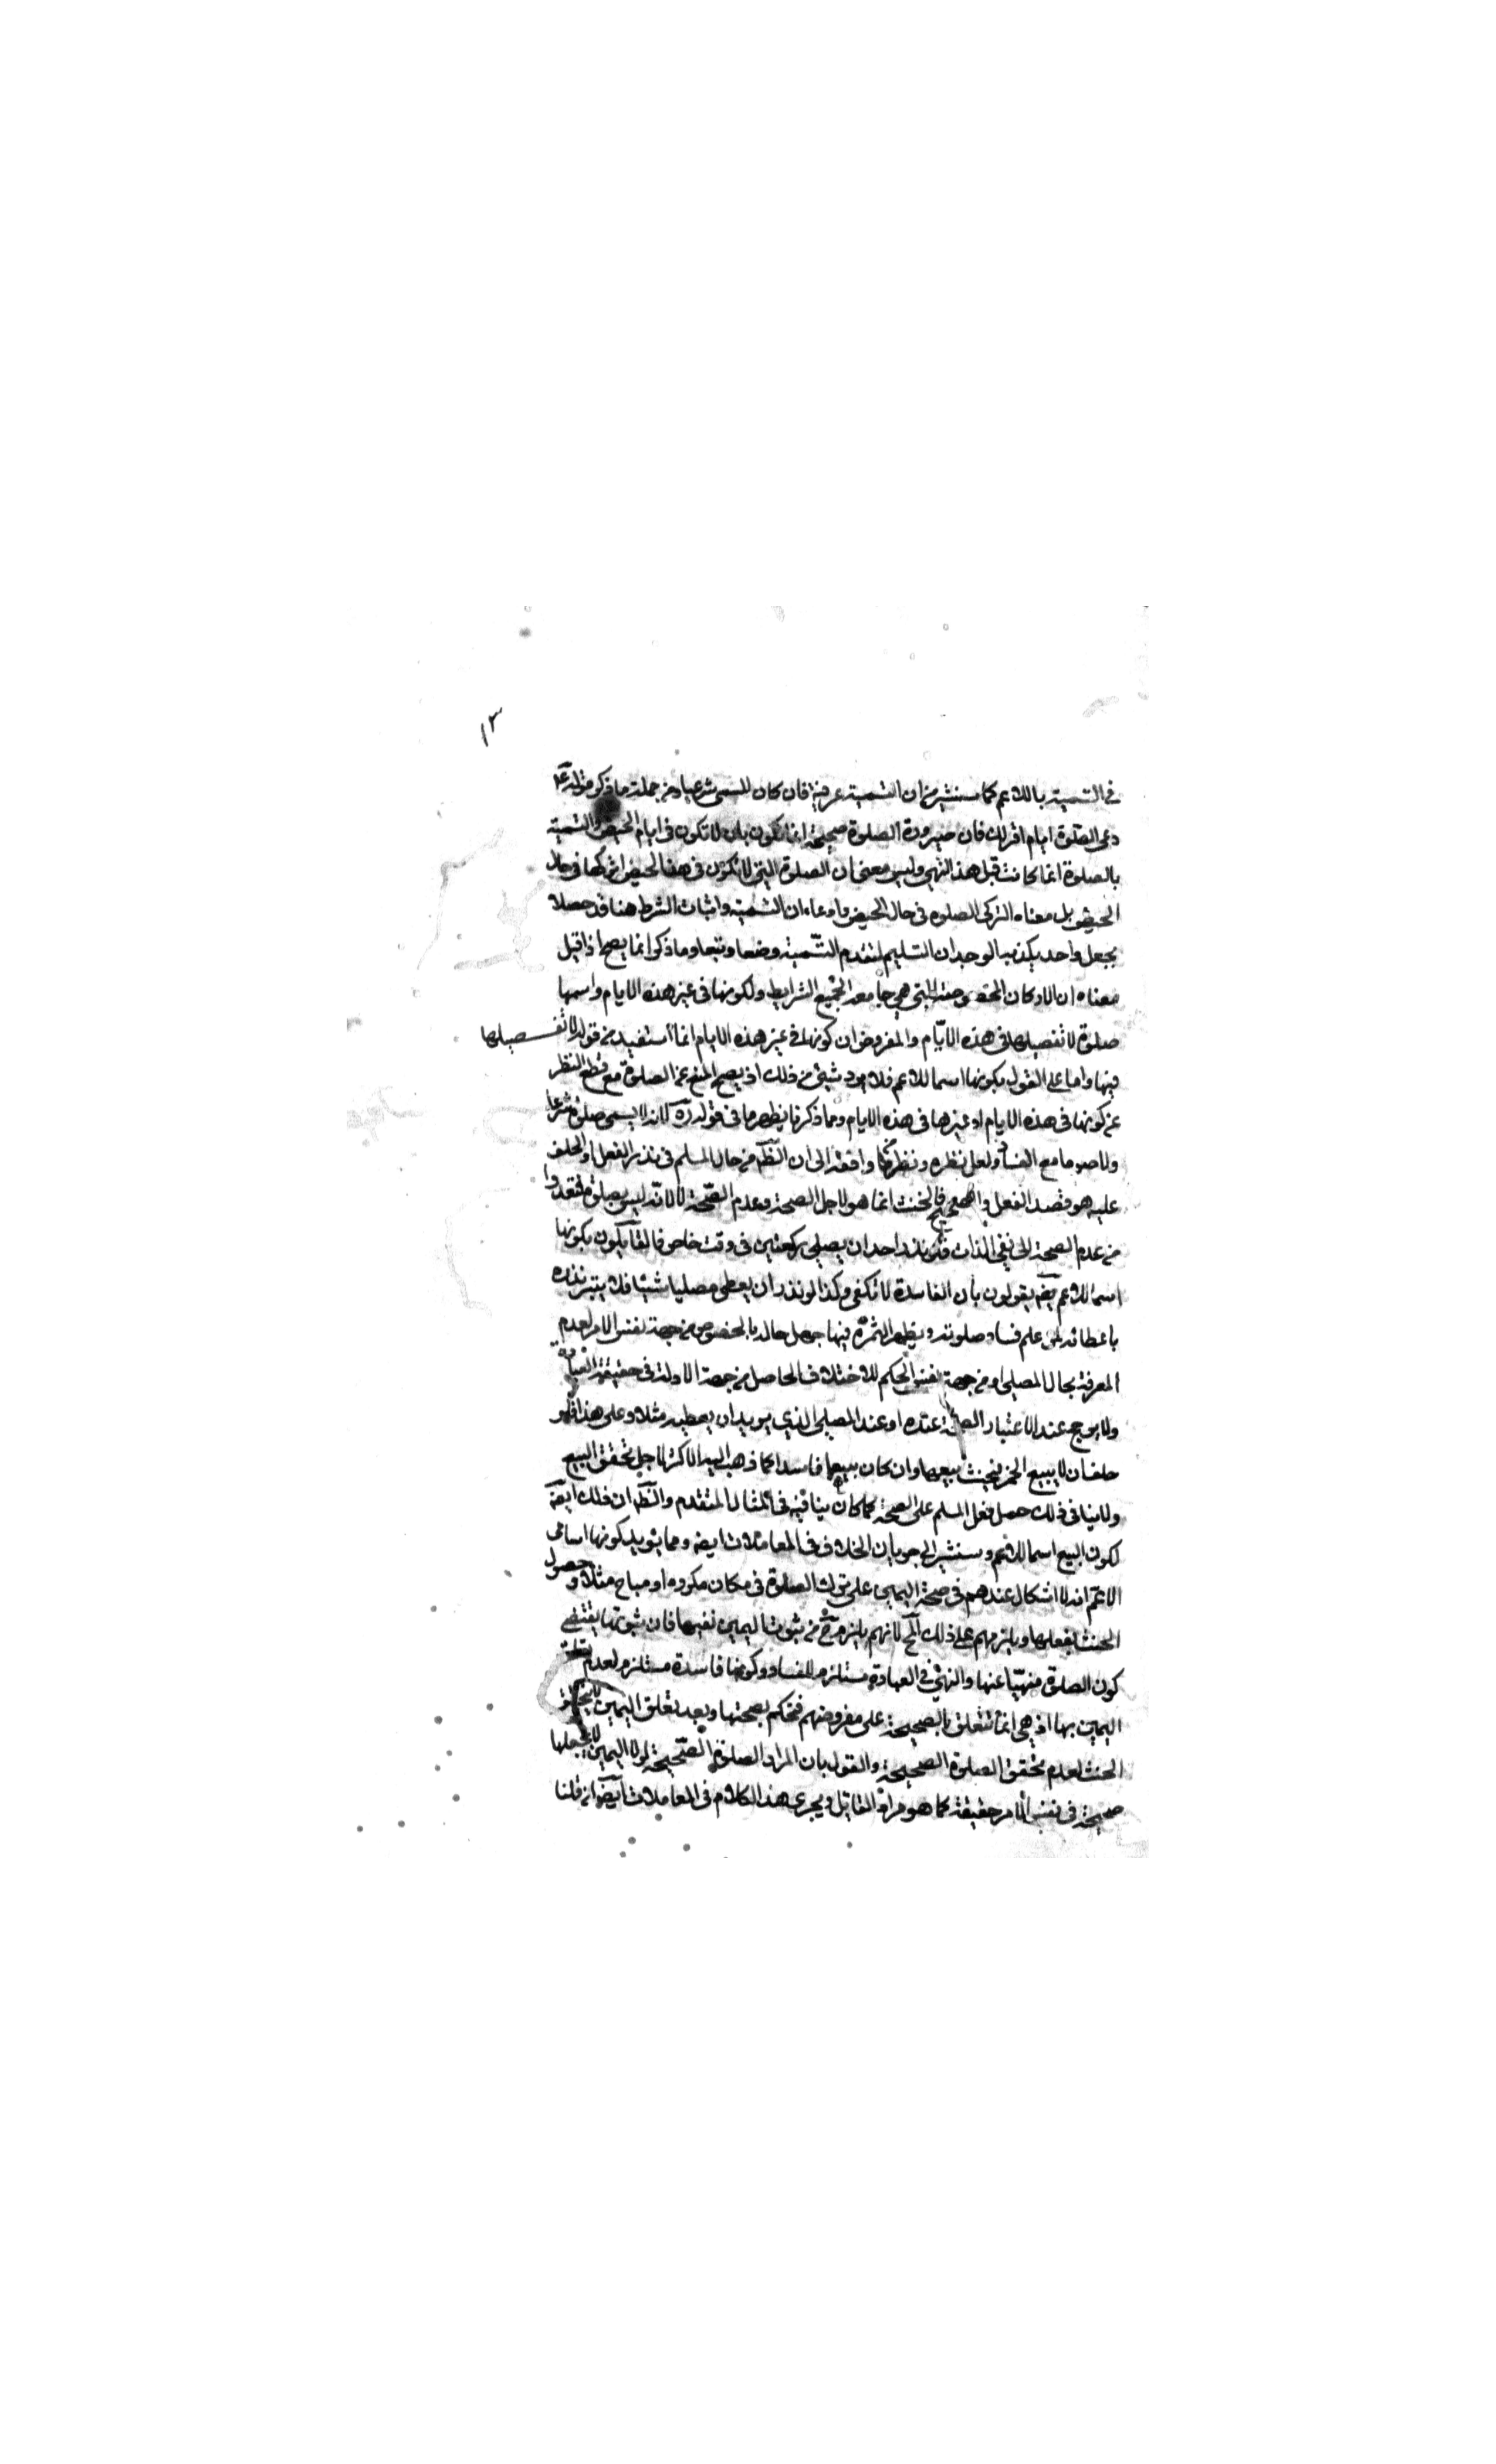 ١٣
في التسمية بالاعم كما سنشير من ان التسمية عرفية فان كان المسمى شرعيا ومن جملة ما ذكر قوله ع
دعى الصلوة ايام اقرائك فان صيرورة الصلوة صحيحة انما تكون بان لا تكون في ايام الحيض والتسمية
بالصلوة انما كانت قبل هذا النهي وليس معنى ان الصلوة التي لا تكون في هذا الحيض اتركها في حال
الحيض بل معناه اتركى الصلوه في حال الحيض وادعاء ان التسمية واثبات الشرط هنا قد حصلا
بجعل واحد يكذبه الوجدان السليم لتقدم التسمية وضعا وتبعا وما ذكر انما يصح اذا قيل
معناه ان الاركان المخصوصة التي هي جامعة لجميع الشرايط ولكونها في غير هذه الايام واسمها
صلوة لا تفعليها في هذه الايام والمفروض ان كونها في غير هذه الايام انما استفيد من قوله لا تفعليها
فيها واما على القول بكونها اسما للاعم فلا يرد شيئ من ذلك اذ يصح المنع عن الصلوة مع قطع النظر
عن كونها في هذه الايام او غيرها في هذه الايام وما ذكرنا يظهر ما في قوله ره لانه لا يسمى صلوة شرعا
ولا صوما مع الفساد ولعل نظره ونظر من وافقه الى ان الظ من حال المسلم في نذر الفعل او الحلف
عليه هو قصد الفعل الصحيح فالحنث انما هو لاجل الصحة وعدم الصحة لا لانه ليس بصلوة
من عدم الصحة الى نفي الذات فلو نذر احد ان يصلى ركعتين في وقت خاص فالقائلون بكونها
اسما للاعم ايض يقولون بأن الفاسدة لا تكفى وكذا لو نذر ان يعطى مصليا شيئا فلا يتبر نذره
باعطائه لمن علم فساد صلوته ويظهر الثمرة فيما جهل حاله بالخصوص من جهة نفس الامر لعدم
المعرفة بحال المصلى او من جهة نفس الحكم للاختلاف الحاصل من جهة الادلة في حقيقة العبادة
ولا يوجب عند الاعتبار الصحة عنده او عند المصلى الذي يريد ان يعطيه مثلا وعلى هذا فلو
حلف ان لا يبيع الخمر فيحنث ببيعها وان كان بيعها فاسدا كما ذهب اليه الاكثر لاجل تحقق البيع
ولا ينافى ذلك حمل فعل المسلم على الصحة كما كان ينافيه في المثال المتقدم والظ ان ذلك ايضه
لكون البيع اسما للاعم وسنشير الى جريان الخلاف في المعاملات ايضه ومما يؤيد كونها اسامى
الاعم انه لا اشكال عندهم في صحة اليمين على ترك الصلوة في مكان مكروه او مباح مثلا وحصول
الحنث بفعلها ويلزمهم على ذلك المح لانهم يلزم ح من ثبوت اليمين نفيها فان ثبوتها يقتضى
كون الصلوة منهيا عنها والنهي في العبادة مستلزم للفساد وكونها فاسدة مستلزم لعدم تعلق
اليمين بها اذ هي انما تتعلق بالصحيحة على مفروضهم فنحكم بصحتها وبعد تعلق اليمين لا يتحقق
الحنث لعدم تحقق الصلوة الصحيحة والقول بان المراد الصلوة الصحيحة لولا اليمين لا يجعلها
صحيحة في نفس الامر حقيقة كما هو مراد القايل ويجرى هذا الكلام في المعاملات ايض ان قلنا